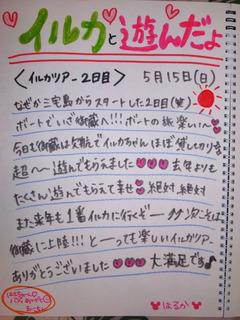 イルカと遊んだよ
〈イルカツアー2日目〉 5月15日(日)
なぜか三宅島からスタートした2日目(笑)
ボートでいざ御蔵へ!!!ボートの旅楽しい〜♡
今日も御蔵は欠航でイルカちゃんほぼ貸し切り
超〜〜遊んでもらえました♡♡♡去年よりも
たくさん遊んでもらえて幸せ♡絶対絶対
また来年も1番イルカに行くぞー!!次こそは
御蔵に上陸!!!と〜っても楽しいイルカツアー
ありがとうございました♡♡♡大満足です♪
はるか